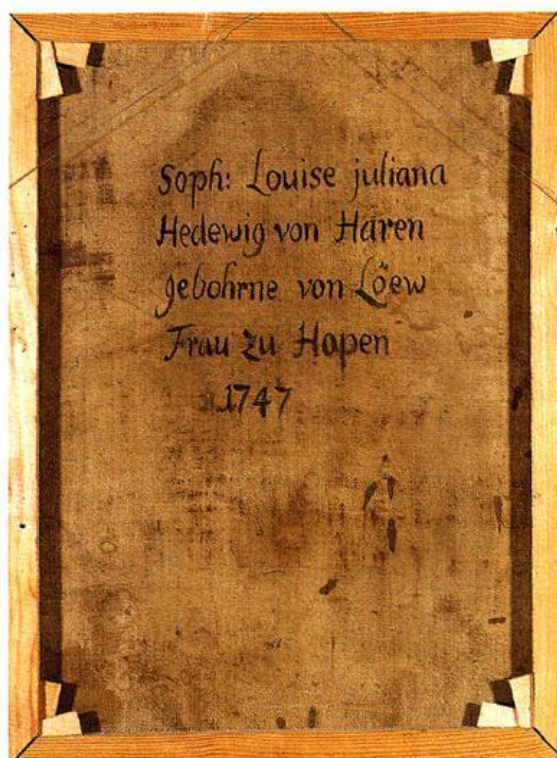 Soph: Louise juliana
Hedewig von Haren
gebohrne von Löew
Frau zu Hopen
1747